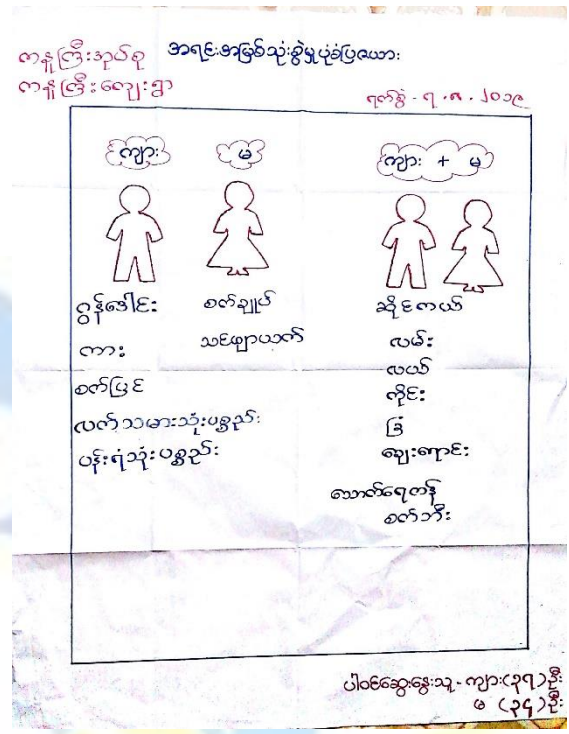 ကနူကြီးအုပ်စု
ကနူကြီးကျေးရွာ
အရင်းအမြစ်သုံးစွဲမှုပုံစံပြဇယား
ရက်စွဲ - ၅.၈.၂၀၁၉
ကျား
မ
ကျား + မ
ဂွန်ဒေါင်း
ကား
စက်ပြင်
လက်သမားသုံးပစ္စည်း
ပန်းရံသုံးပစ္စည်း
စက်ချုပ်
သင်ဖျာယက်
ဆိုင်ကယ်
လမ်း
လယ်
ကိုင်း
ခြံ
ဈေးရောင်း
သောက်ရေကန်
စက်ဘီး
ပါဝင်ဆွေးနွေးသူ - ကျား(၃၅)ဦး
မ (၃၄)ဦး